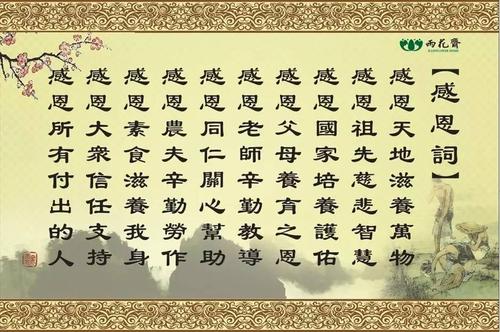 雨花齋
【感恩詞】
感恩天地滋養萬物
感恩祖先慈悲智慧
感恩國家培養護佑
感恩父母養育之恩
感恩老師辛勤教導
感恩同仁關心幫助
感恩農夫辛勤勞作
感恩素食滋養我身
感恩大衆信任支持
感恩所有付出的人